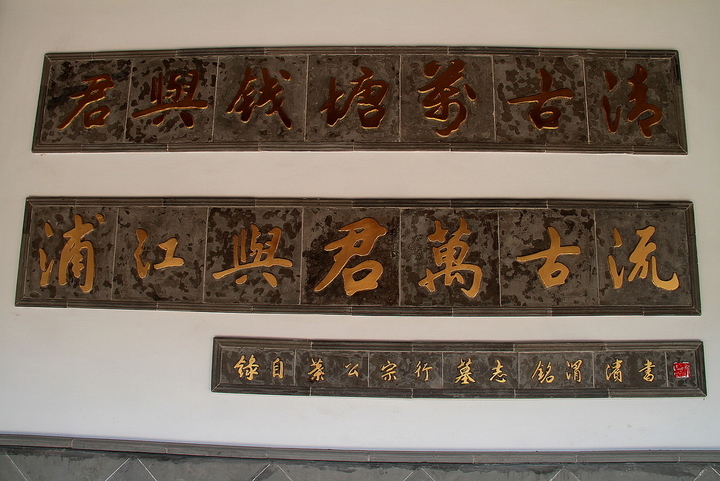 君與钱塘萬古清
浦江與君萬古流
錄自蔡公宗行墓志銘渭清書